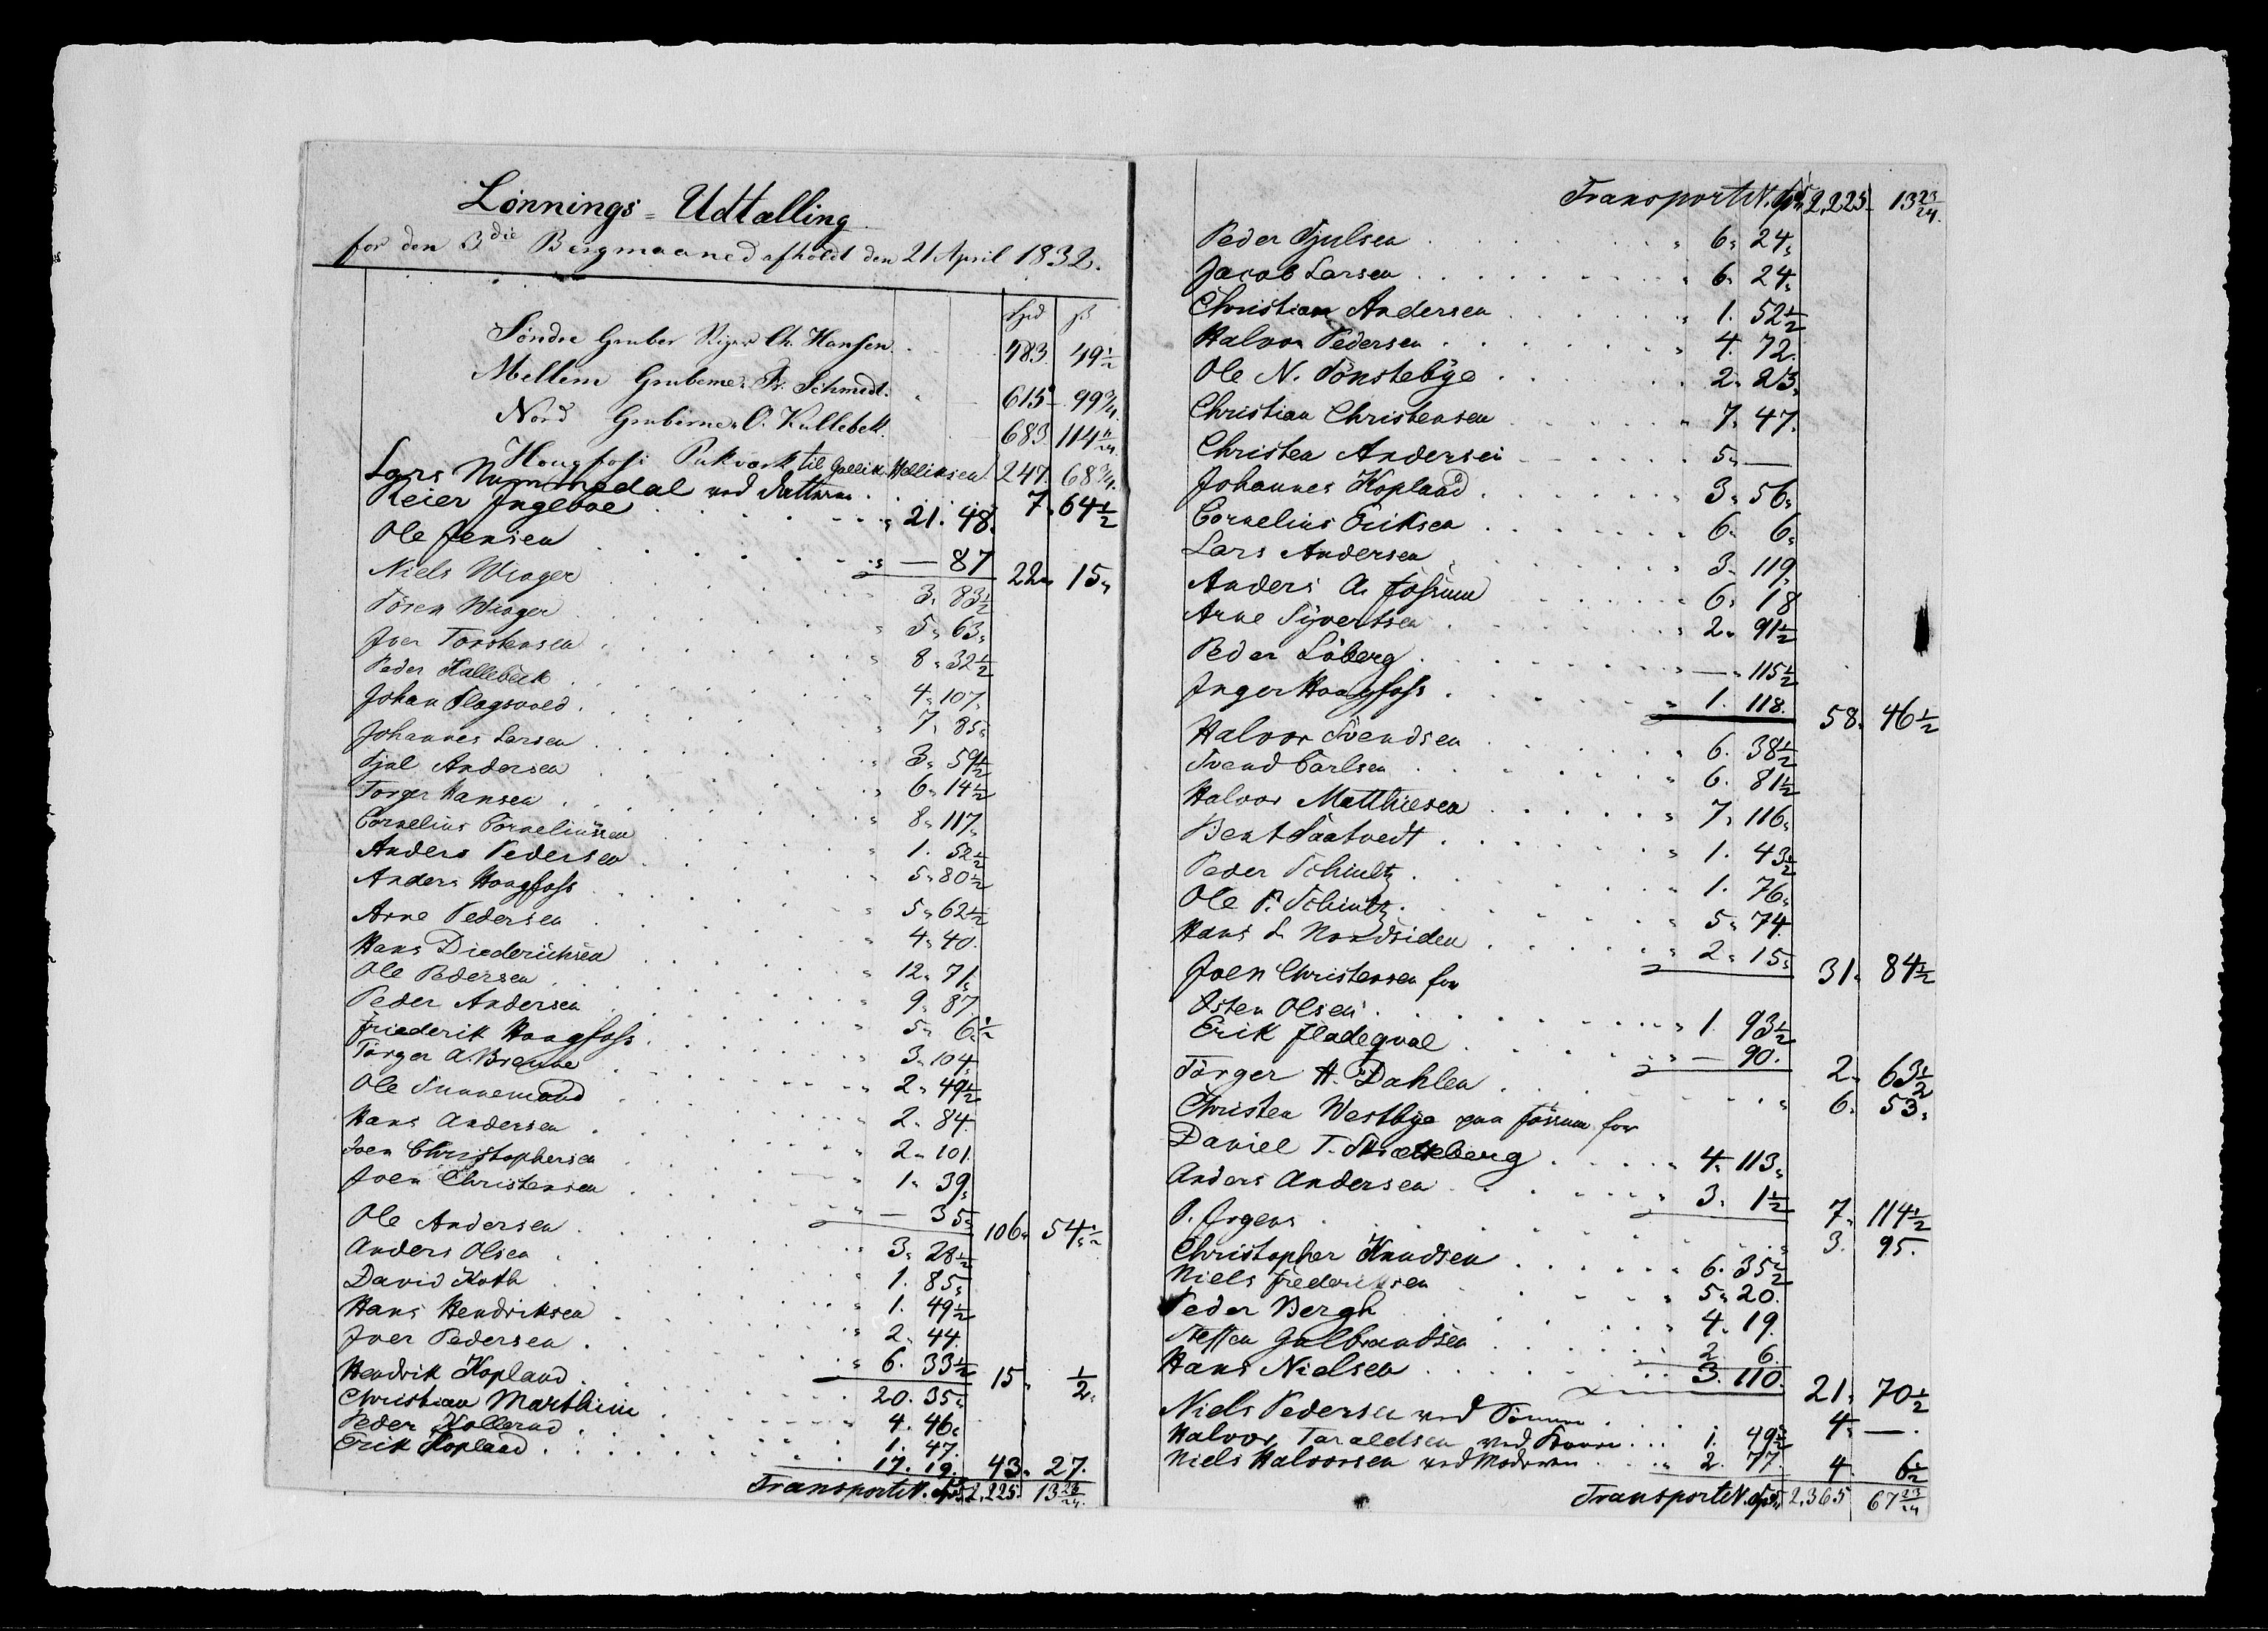 Lönnings = Udtælling
for den 3die Bergmaaned afholdt den 21 April 1832.
Spd ß
Söndre Gruber Stiger Ch. Hansen 483. 49½
Mellem Gruberne Fr. Schmidt. 615 99¾
Nord Gruberne O. Kullebek 683. 114 11/24
Hougfoss Pukværk til Gullik Helliksen 247. 68¾
Lars Nummedal ved 7. 64½
Reier Ingeboe 21. 48.
Ole Jensen — 87 22. 15.
Niels Winger 3. 83½
Sören Winger 5. 63.
Iver Torstensen 8. 32½
Peder Kallebæk 4. 107.
Johan Flagsvold 7. 85.
Johannes Larsen 3. 59½
Kjøl Andersen 6. 14½
Torger Hansen 8. 117.
Cornelius Corneliussen 1. 52½
Anders Pedersen 5. 80½
Anders Hougfoss 5. 62½
Arne Pedersen 4. 40.
Hans Diederichsen 12. 71.
Ole Pedersen 9. 87.
Peder Andersen 5. 6½
Friederik Hougfoss 3. 104.
Törger A. Brænne 2. 49½
Ole Sunnemand 2. 84
Hans Andersen 2. 101.
Joen Christophersen 1. 39.
Joen Christensen — 35. 106. 54½
Ole Andersen 3. 28½
Anders Olsen 1. 85.
David Koth 1. 49½
Hans Hendriksen 2. 44.
Iver Pedersen 6. 33½ 15. ½.
Hendrik Kopland 20. 35.
Christian Marthini 4. 46.
Peder Kollerud 1. 47.
Erik Kopland 17. 19. 43. 27.
Transport N. Spd 2,225. 13 23/24.
Transport N. Spd 2,225. 13 23/24.
Peder Kjulsen 6. 24.
Jacob Larsen 6. 24.
Christian Andersen 1. 52½
Halvor Pedersen 4. 72.
Ole N. Tönstebye 2. 23.
Christian Christensen 7. 47.
Christen Andersen 5. —
Johannes Kopland 3. 56.
Cornelius Eriksen 6. 6.
Lars Andersen 3. 119.
Anders A. Fossum 6. 18
Arne Syvertsen 2. 91½
Peder Löberg — 115½
Inger Hougfoss 1. 118. 58. 46½
Halvor Svendsen 6. 38½
Svend Carlsen 6. 81½
Halvor Matthiesen 7. 116.
Bent Saatvedt 1. 43½
Peder Schultz 1. 76.
Ole P. Schultz 5. 74
Hans L. Nordsiden 2. 15. 31. 84½
Joen Christensen for
Østen Olsen 1. 93½
Erik Fladeqval — 90. 2. 63½
Törger H. Dahlen 6. 53.
Christen Westbye paa Fossum for
Daniel T. Skrækkeberg 4. 113.
Anders Andersen 3. 1½ 7. 114½
P. Irgens 3. 95.
Christopher Knudsen 6. 35½
Niels Frederiksen 5. 20.
Peder Bergh 4. 19.
Steffen Gulbrandsen 2. 6.
Hans Nielsen 3. 110. 21. 70½
Niels Pedersen ved 4. —.
Halvor Taraldsen ved 1. 49½
Niels Halvorsen ved 2. 77. 4. 6½
Transport N. Spd 2,365 67 23/24